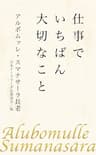 仕事で
いちばん
大切なこと
アルボムッレ・スマナサーラ長老
Alubomulle
Sumanasara